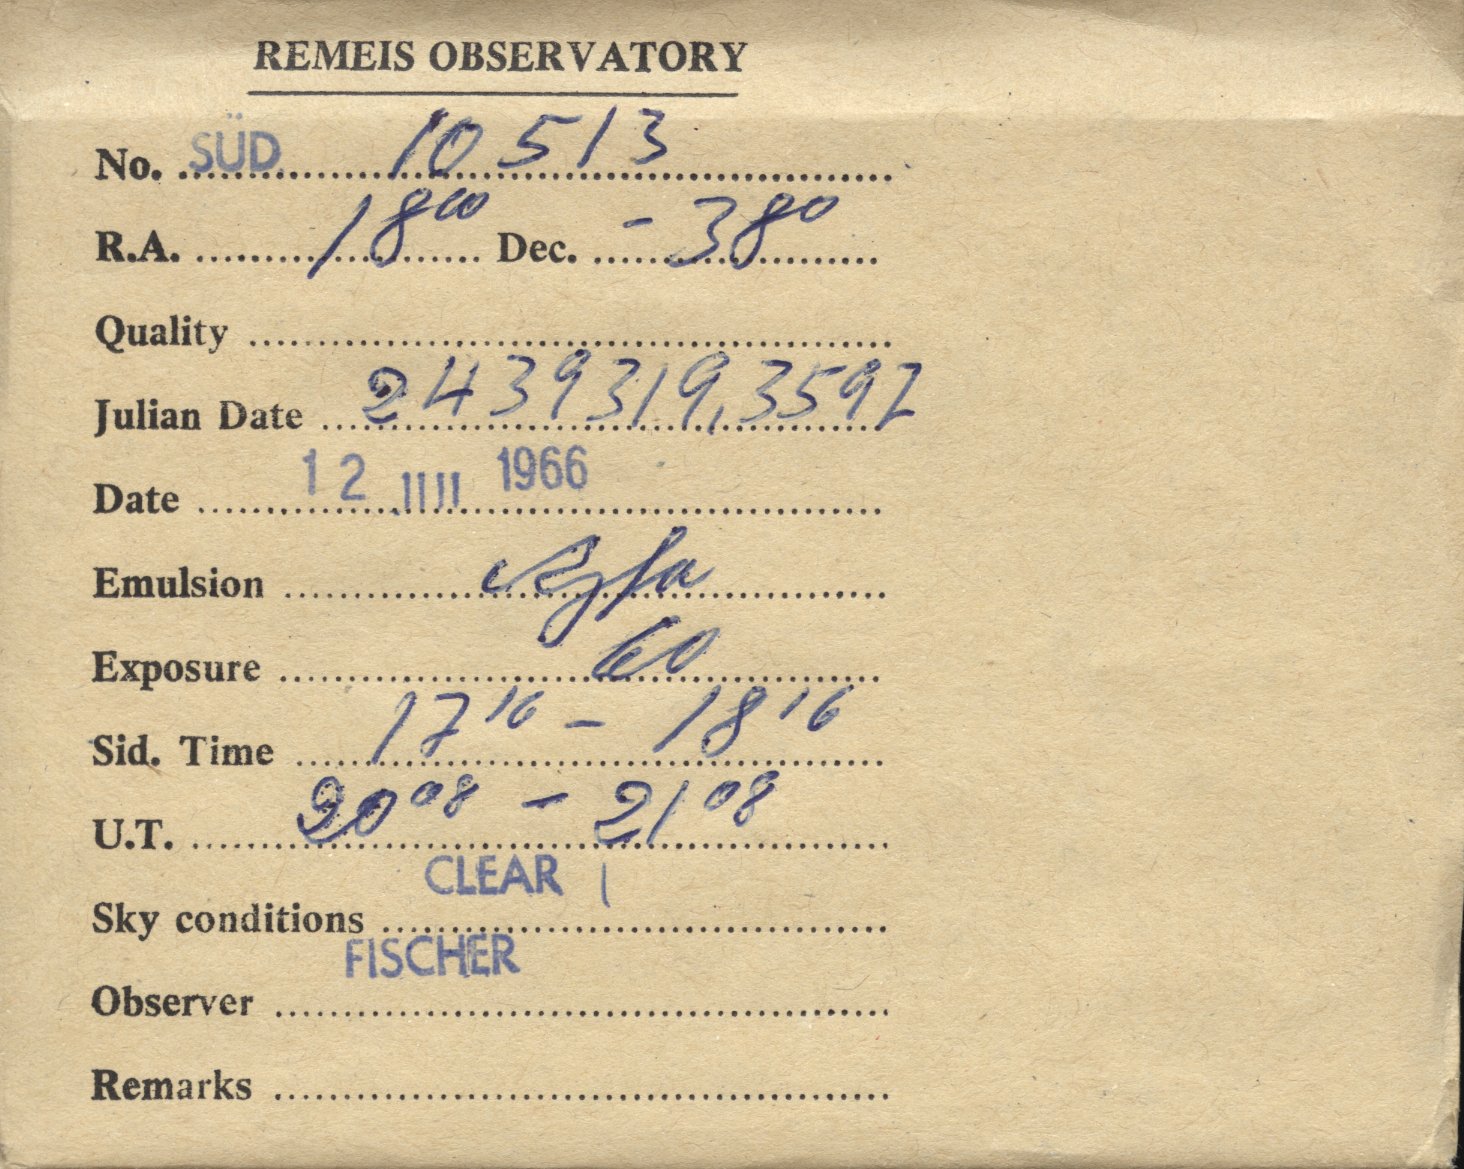 REMEIS OBSERVATORY
No. SÜD 10513
R.A. 18⁰⁰ Dec. -38⁰
Quality
Julian Date 2439319,3597
Date 12 1966
Emulsion Agfa
Exposure 60
Sid. Time 17¹⁶ - 18¹⁶
U.T. 20⁰⁸ - 21⁰⁸
Sky conditions CLEAR
Observer FISCHER
Remarks